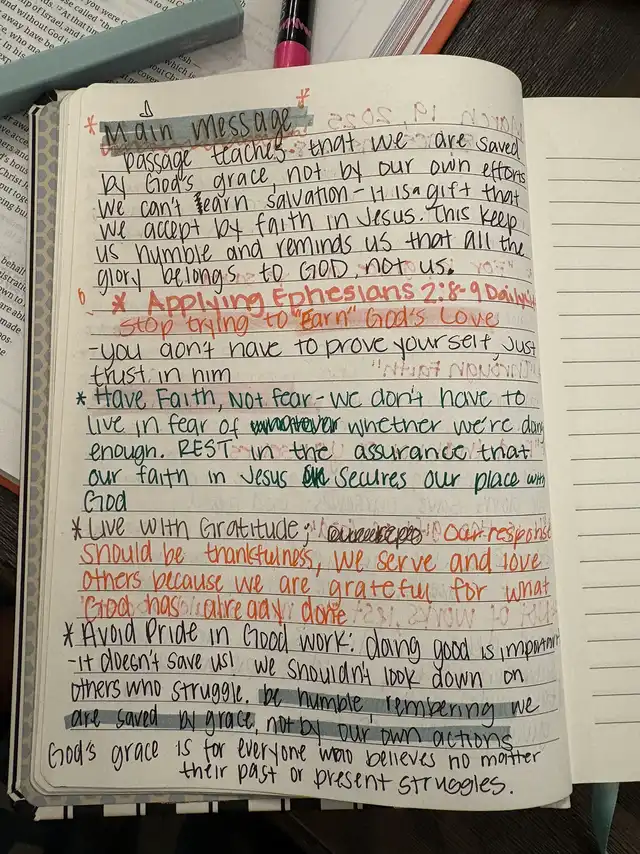 * Main message *
passage teaches that we are saved
by God's grace, not by our own efforts
we can't earn salvation - it is a gift that
we accept by faith in Jesus. This keep
us humble and reminds us that all the
glory belongs to GOD, not us.
* Applying Ephesians 2:8-9 Daily
stop trying to "Earn" God's Love
- you don't have to prove yourself, just
trust in him
* Have Faith, Not fear - we don't have to
live in fear of whether we're doing
enough. REST in the assurance that
our faith in Jesus secures our place with
God
* Live with Gratitude; Our response
should be thankfulness, we serve and love
others because we are grateful for what
God has already done
* Avoid Pride in Good work: doing good is important
- it doesn't save us! we shouldn't look down on
others who struggle. be humble, rembering we
are saved by grace, not by our own actions
God's grace is for everyone who believes no matter
their past or present struggles.